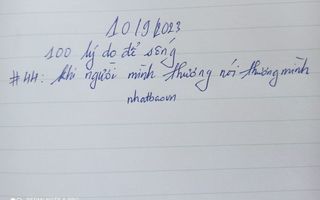 10/9/2023
100 lý do để sống
#44: khi người mình thương nói thương mình
nhatbaovn